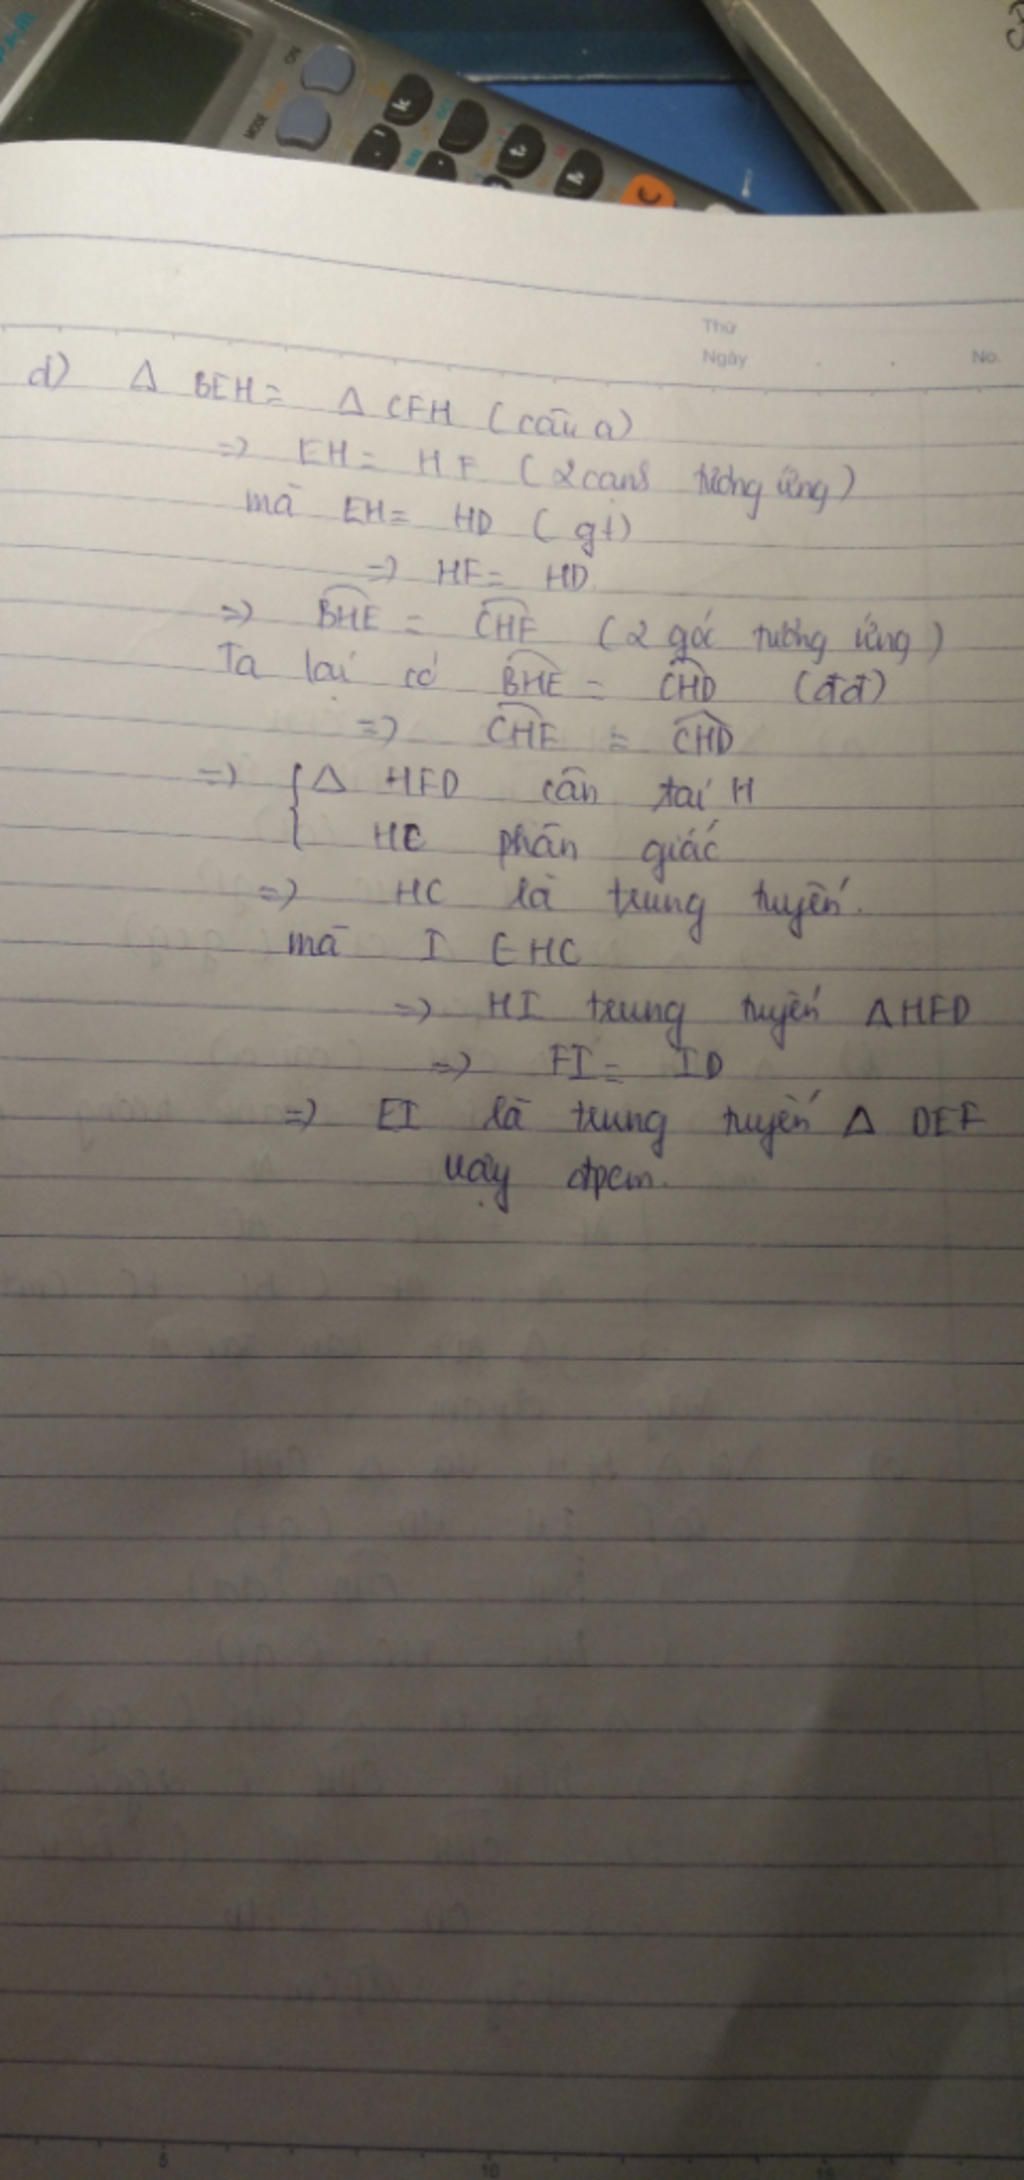 MODE
ON
k
t
h
C
Thứ
Ngày
No.
d) Δ BEH = Δ CFH (câu a)
=> EH = HF (2 cạnh tương ứng)
mà EH = HD (gt)
=> HF = HD
=> BHE = CHF (2 góc tương ứng)
Ta lại có BHE = CHD (đđ)
=> CHF = CHD
=> { Δ HFD cân tại H
HC phân giác
=> HC là trung tuyến.
mà I ∈ HC
=> HI trung tuyến Δ HFD
=> FI = ID
=> EI là trung tuyến Δ DEF
Vậy đpcm.
5
10